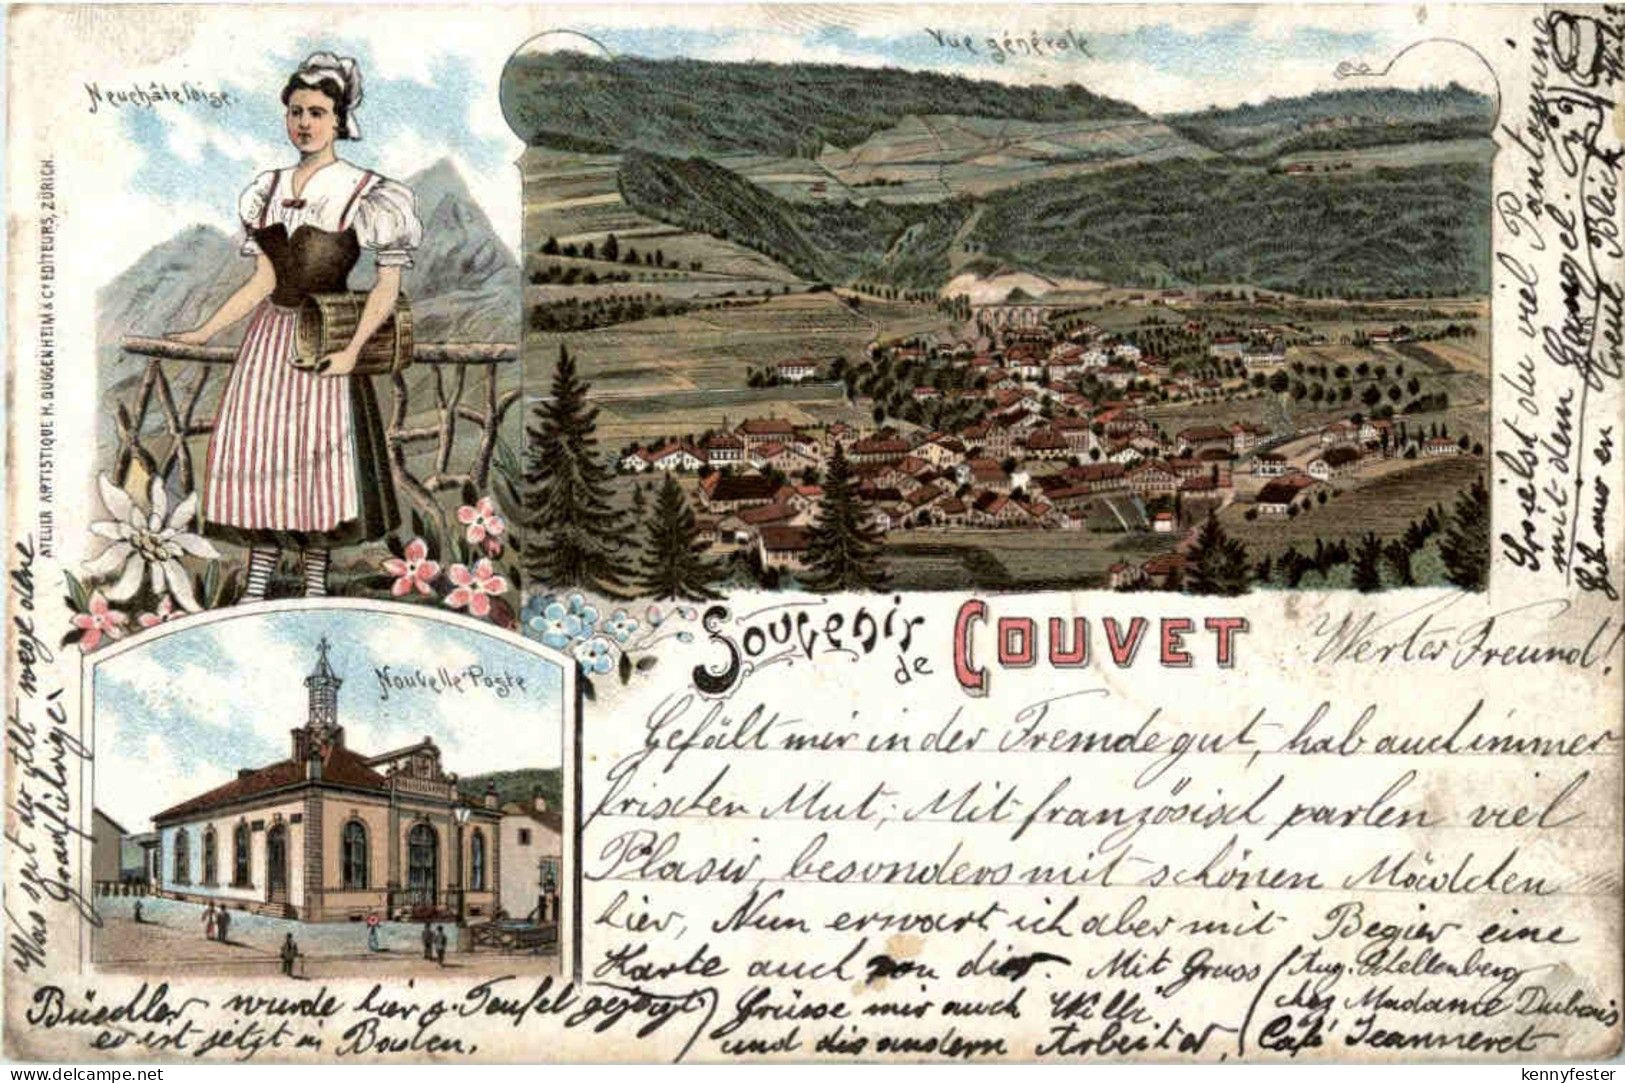 Neuchâteloise.
Vue générale
ATELIER ARTISTIQUE H. GUGGENHEIM & Cie EDITEURS, ZÜRICH.
Nouvelle Poste
Souvenir de COUVET
Werter Freund!
Gefält mir in der Fremde gut, hab auch immer
frischen Mut; Mit französisch parlen viel
Plasir, besonders mit schönen Mädchen
hier, Nun erwart ich aber mit Begier eine
Karte auch von dir. Mit Gruss
Aug. Schellenberg
chez Madame Dubois
Café Jeanneret
Grüsse mir auch Willi
und die andern Arbeiter,
Büechler wurde hier z. Teufel gejagt
er ist jetzt in Baden.
Was seit der
Spielst du viel Pantomine
mit dem